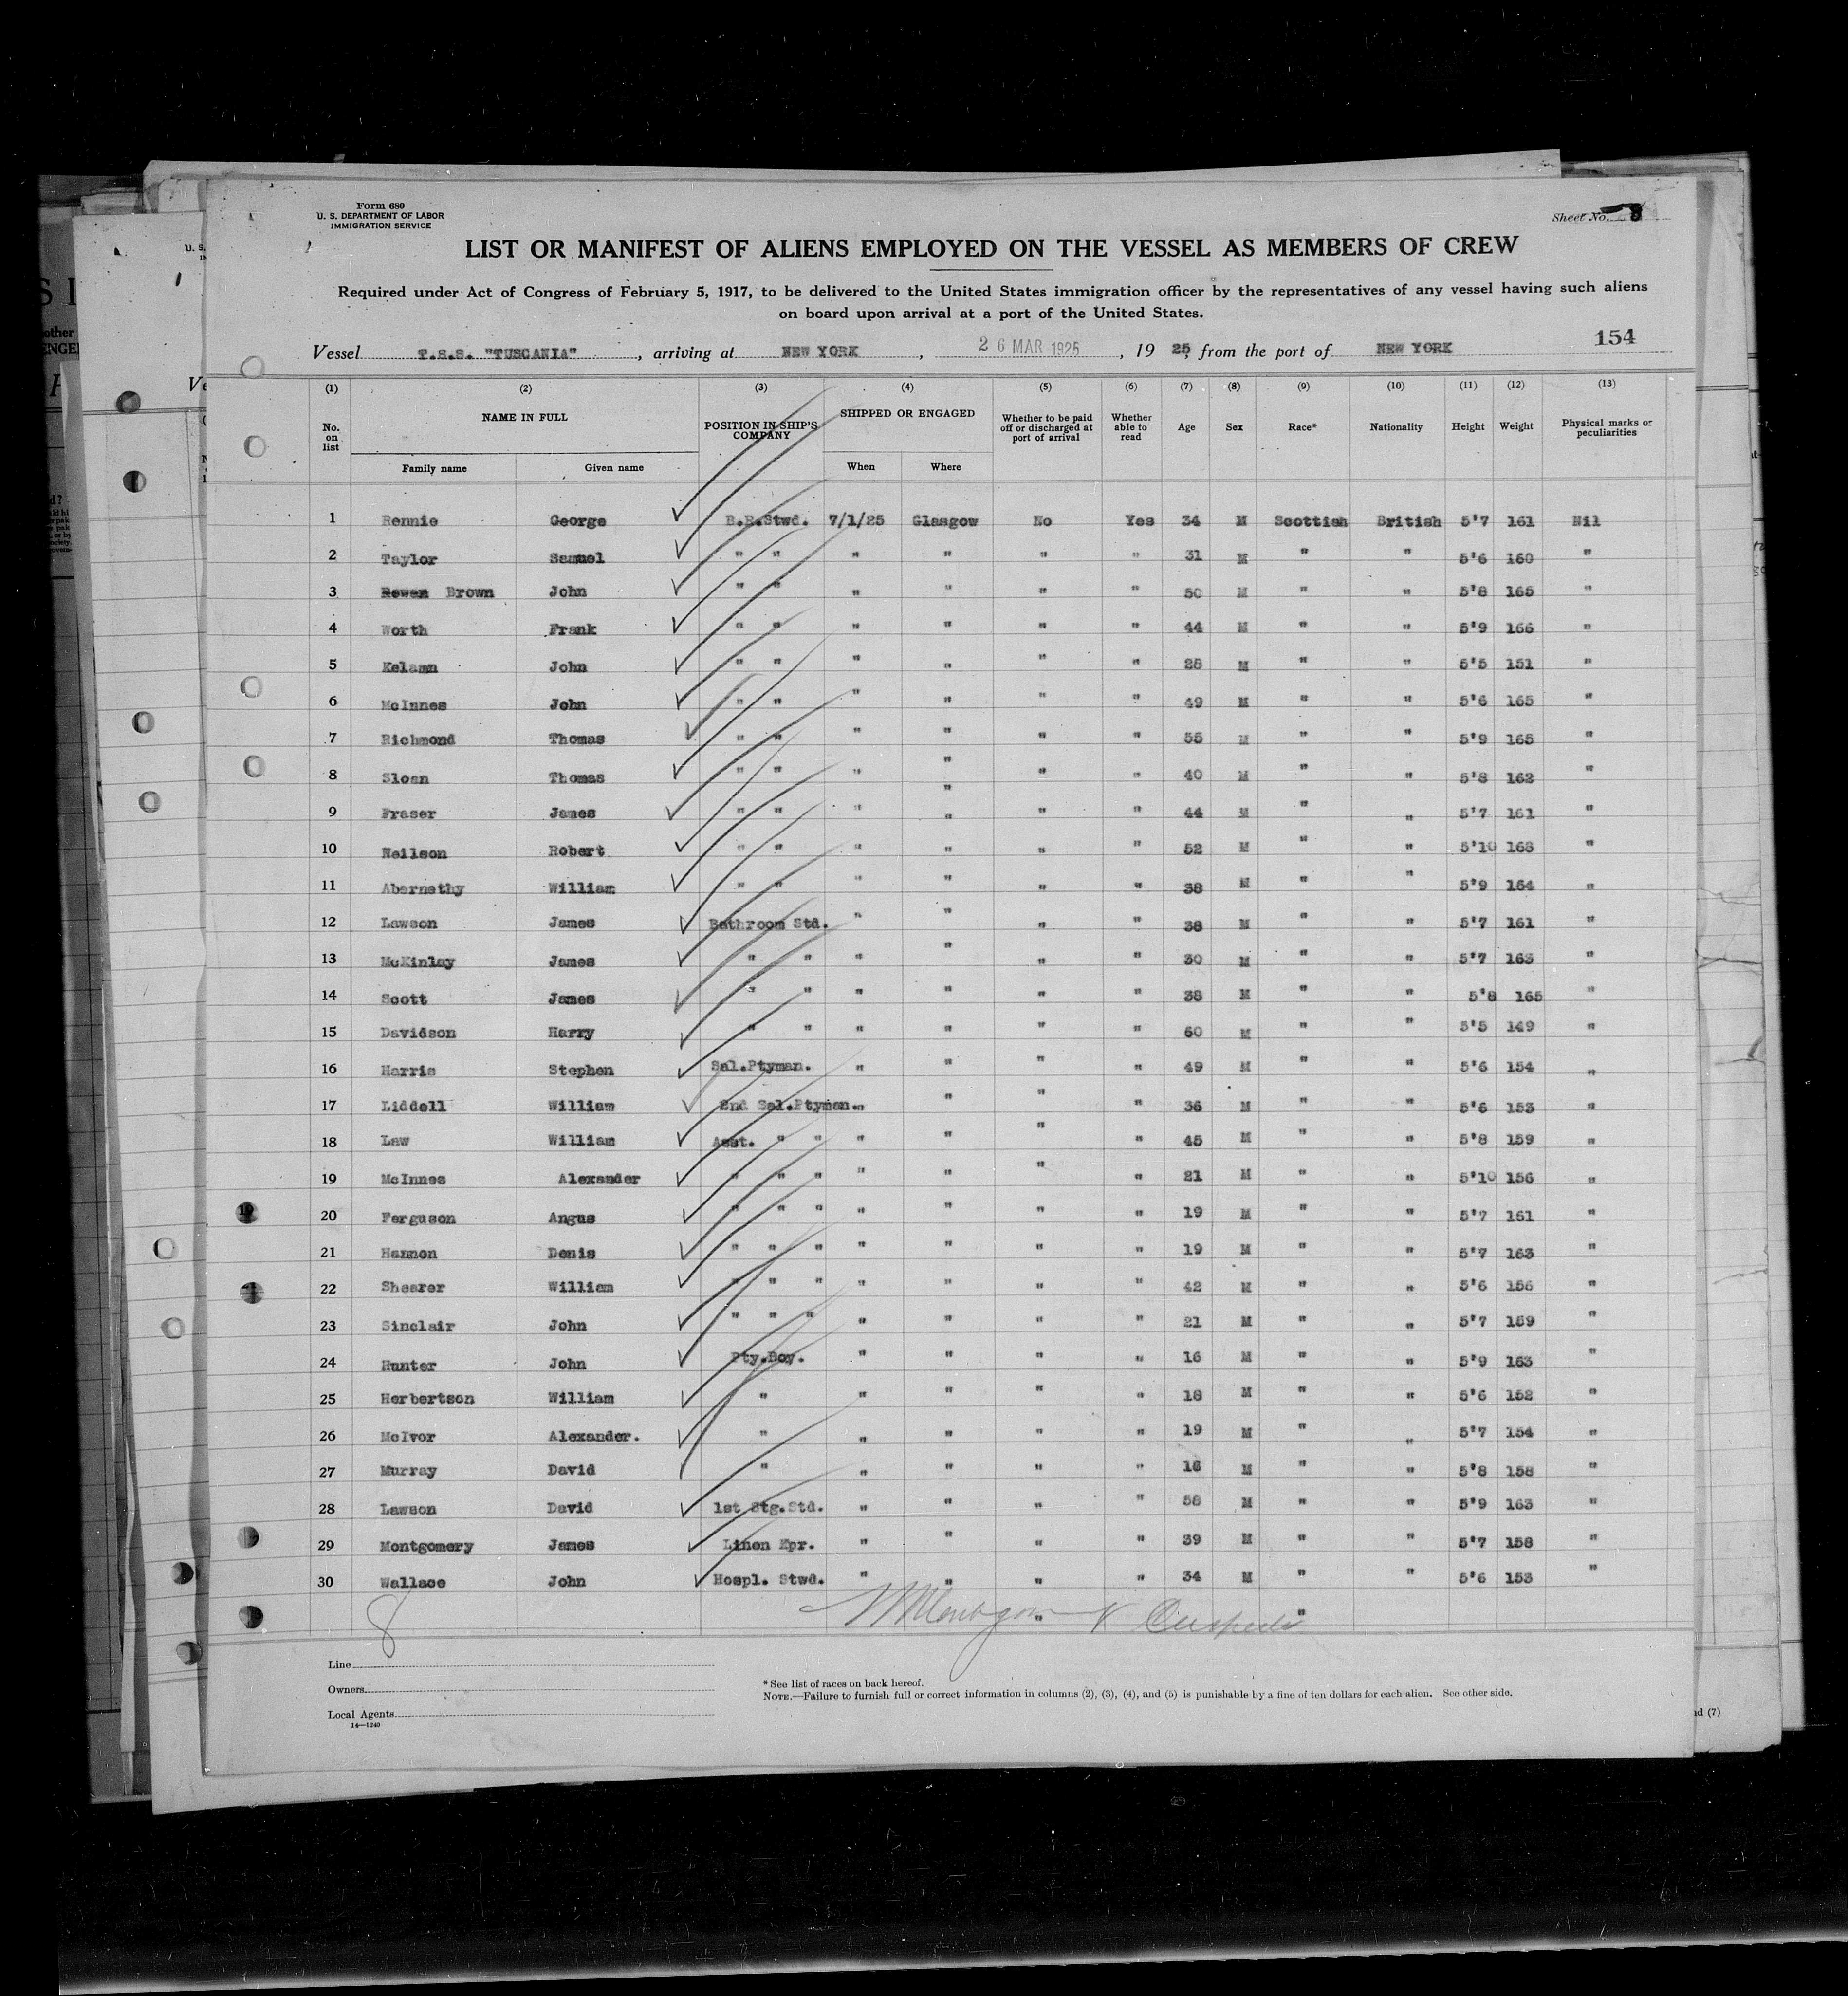 Form 680
U. S. DEPARTMENT OF LABOR
IMMIGRATION SERVICE
Sheet No. 8
LIST OR MANIFEST OF ALIENS EMPLOYED ON THE VESSEL AS MEMBERS OF CREW
Required under Act of Congress of February 5, 1917, to be delivered to the United States immigration officer by the representatives of any vessel having such aliens
on board upon arrival at a port of the United States.
154
Vessel T.S.S. "TUSCANIA", arriving at NEW YORK, 26 MAR 1925, 19 25, from the port of NEW YORK
(1) (2) (3) (4) (5) (6) (7) (8) (9) (10) (11) (12) (13)
No. on list NAME IN FULL Family name Given name POSITION IN SHIP'S COMPANY SHIPPED OR ENGAGED When Where Whether to be paid off or discharged at port of arrival Whether able to read Age Sex Race* Nationality Height Weight Physical marks or peculiarities
1 Rennie George B.R.Stwd. 7/1/25 Glasgow No Yes 34 M Scottish British 5'7 161 Nil
2 Taylor Samuel " " " " " " 31 M " " 5'6 160 "
3 Rowen Brown John " " " " " " 50 M " " 5'8 165 "
4 Worth Frank " " " " " " 44 M " " 5'9 166 "
5 Kelamn John " " " " " " 28 M " " 5'5 151 "
6 McInnes John " " " " " " 49 M " " 5'6 165 "
7 Richmond Thomas " " " " " " 55 M " " 5'9 165 "
8 Sloan Thomas " " " " " " 40 M " " 5'8 162 "
9 Fraser James " " " " " " 44 M " " 5'7 161 "
10 Neilson Robert " " " " " " 52 M " " 5'10 163 "
11 Abernethy William " " " " " " 38 M " " 5'9 164 "
12 Lawson James Bathroom Std. " " " " 38 M " " 5'7 161 "
13 McKinlay James " " " " " " 30 M " " 5'7 163 "
14 Scott James " " " " " " 38 M " " 5'8 165 "
15 Davidson Harry " " " " " " 60 M " " 5'5 149 "
16 Harris Stephen Sal.Ptyman. " " " " 49 M " " 5'6 154 "
17 Liddell William 2nd Sal.Ptyman. " " " " 36 M " " 5'6 153 "
18 Law William Asst. " " " " " " 45 M " " 5'8 159 "
19 McInnes Alexander " " " " " " " 21 M " " 5'10 156 "
20 Ferguson Angus " " " " " " " 19 M " " 5'7 161 "
21 Hannon Denis " " " " " " " 19 M " " 5'7 163 "
22 Shearer William " " " " " " " 42 M " " 5'6 156 "
23 Sinclair John " " " " " " " 21 M " " 5'7 159 "
24 Hunter John Pty.Boy. " " " " 16 M " " 5'9 163 "
25 Herbertson William " " " " " 18 M " " 5'6 152 "
26 McIvor Alexander. " " " " " 19 M " " 5'7 154 "
27 Murray David " " " " " 16 M " " 5'8 158 "
28 Lawson David 1st Stg.Std. " " " " 58 M " " 5'9 163 "
29 Montgomery James Linen Kpr. " " " " 39 M " " 5'7 158 "
30 Wallace John Hospl. Stwd. " " " " 34 M " " 5'6 153 "
8 " "
Line
Owners
Local Agents
14—1240
* See list of races on back hereof.
NOTE.—Failure to furnish full or correct information in columns (2), (3), (4), and (5) is punishable by a fine of ten dollars for each alien. See other side.